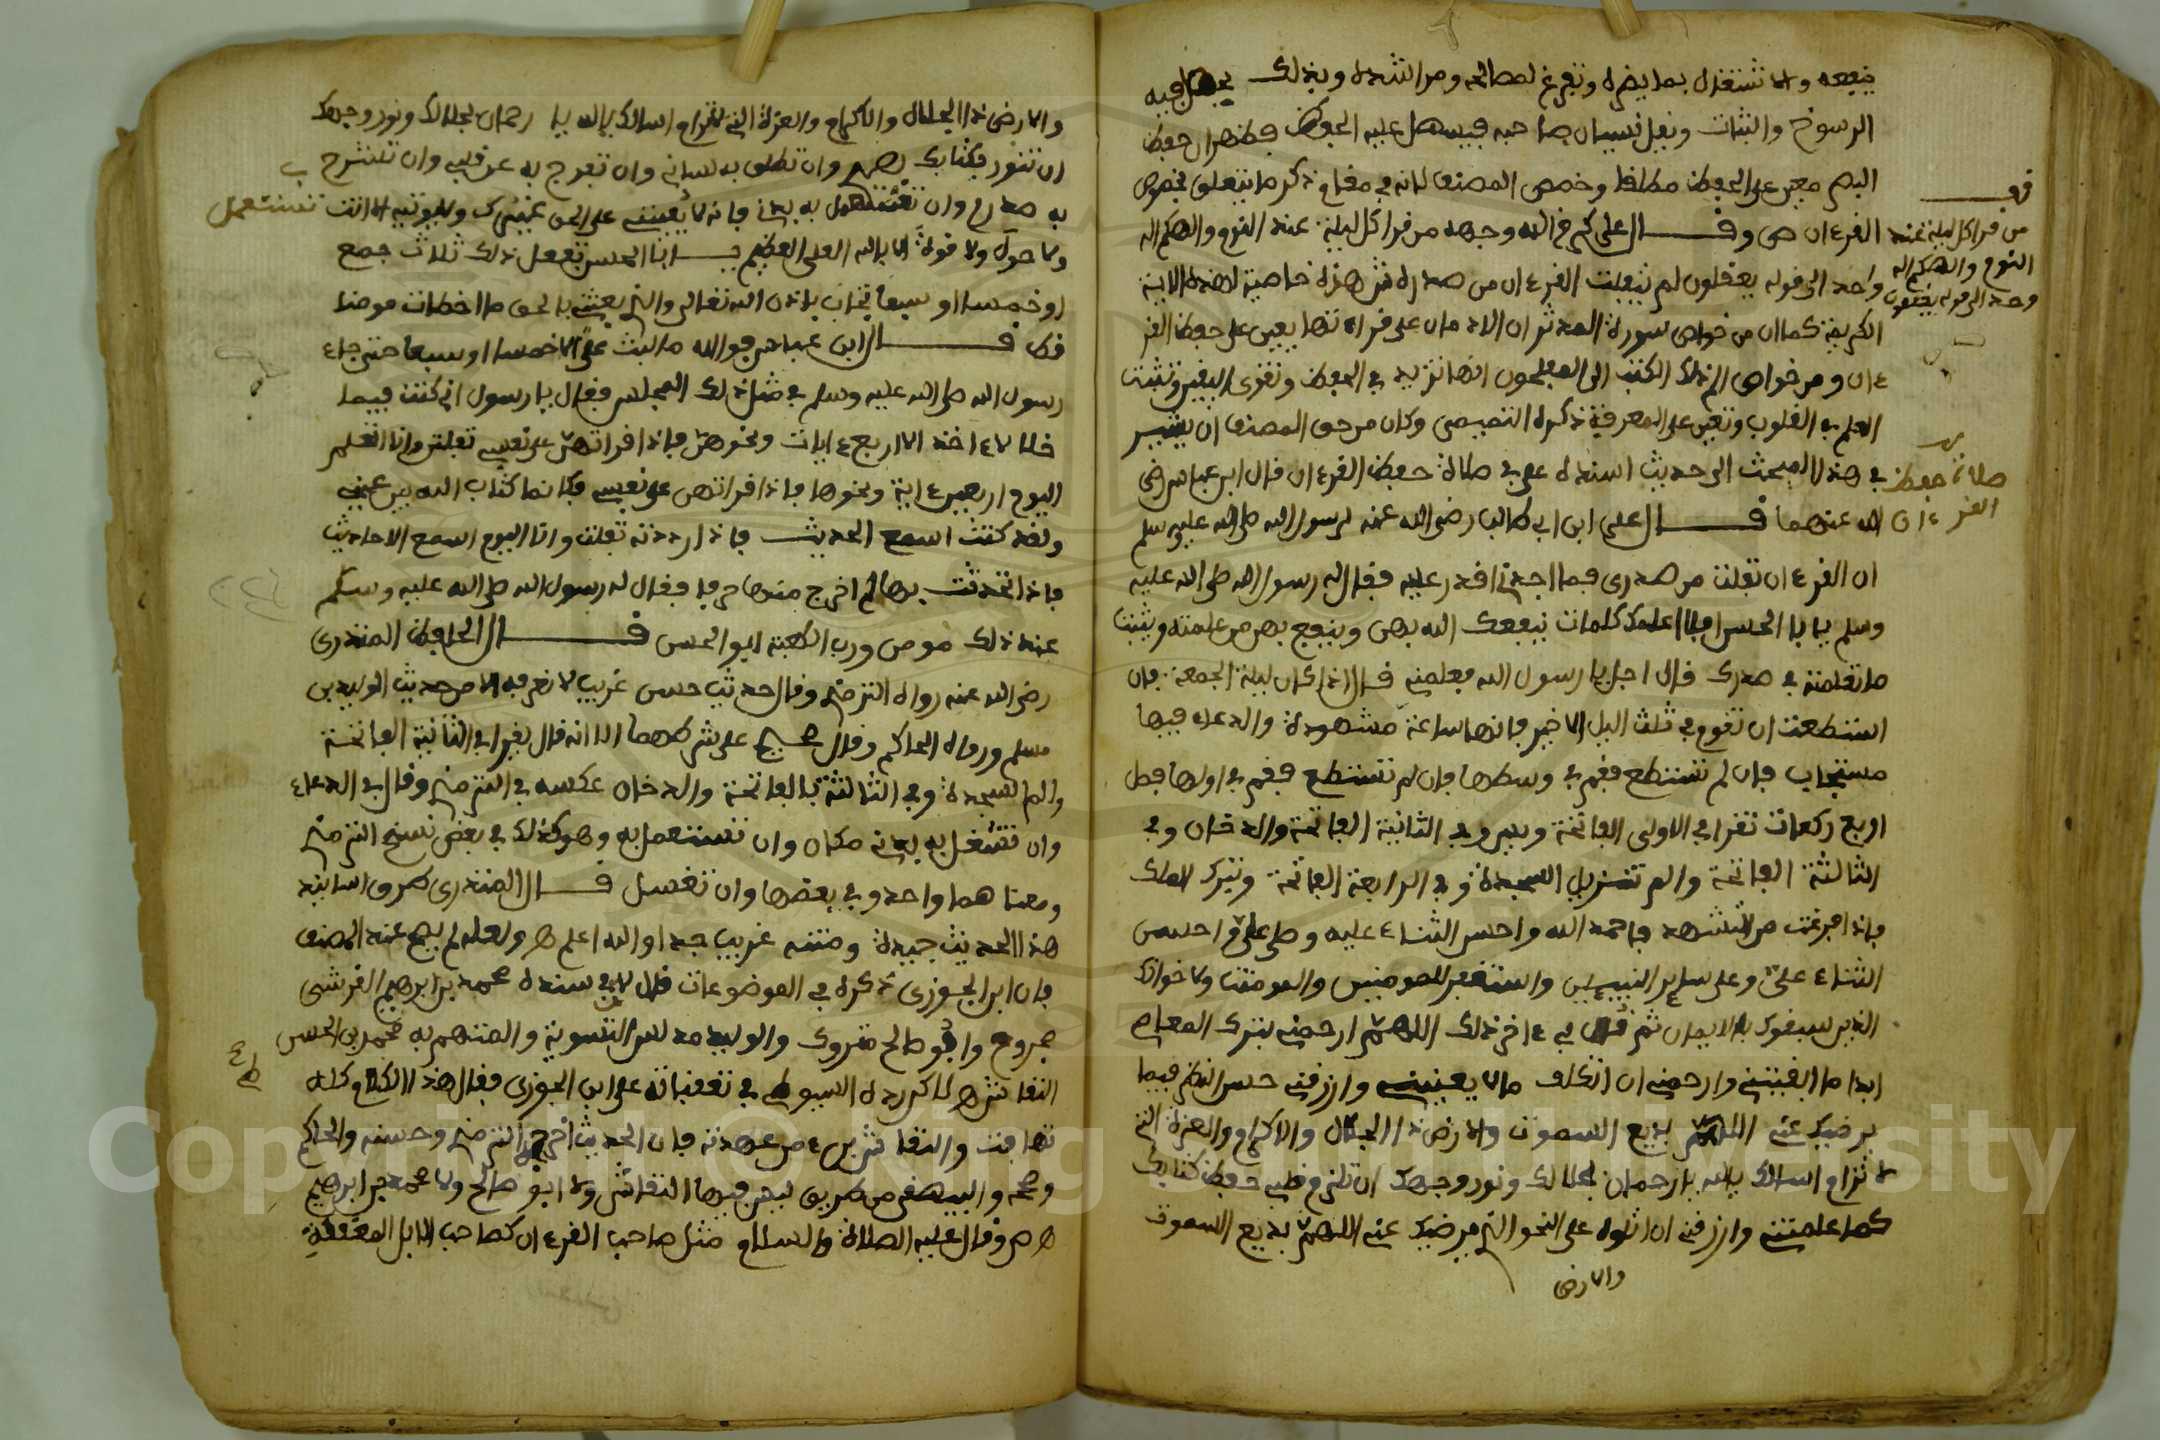 ينفعه والاشتغال بما يضره وتفرغ لمصالحه ومراشده وبذلك يحصل فيه
الرسوخ والثبات ويقل نسيان صاحبه فيسهل عليه الحفظ فظهر ان حفظ
البصر معين على الحفظ مطلقا وخص المصنف لانه في مقام ذكر ما يتعلق بخصوص
القرءان ص وقال علي كرم الله وجهه من قرا كل ليلة عند النوم والهكم اله
واحد الى قوله يعقلون لم يتفلت القرءان من صدره ش هذه خاصية لهذه الاية
الكريمة كما ان من خواص سورة المدثر ان الادمان على قراءتها يعين على حفظ القر
ءان ومن خواص الم ذلك الكتب الى المفلحون انها تزيد في الحفظ وتقوي اليقين وتثبت
العلم في القلوب وتعين على المعرفة ذكره التميمي وكان من حق المصنف ان يشير
في هذا المبحث الى حديث اسنده علي في صلاة حفظ القرءان قال ابن عباس رضي
الله عنهما قال علي ابن ابي طالب رضي الله عنه لرسول الله صلى الله عليه وسلم
ان القرءان تفلت من صدري فما اجدني اقدر عليه فقال له رسول الله صلى الله عليه
وسلم يا ابا الحسن افلا اعلمك كلمات ينفعك الله بهن وينفع بهن من علمته ويثبت
ما تعلمته في صدرك قال اجل يا رسول الله فعلمني قال اذا كان ليلة الجمعة فان
استطعت ان تقوم في ثلث اليل الاخير فانها ساعة مشهودة والدعاء فيها
مستجاب فان لم تستطع فقم في وسطها فان لم تستطع فقم في اولها فصل
اربع ركعات تقرا في الاولى الفاتحة ويس وفي الثانية الفاتحة والدخان وفي
الثالثة الفاتحة والم تنزيل السجدة وفي الرابعة الفاتحة وتبرك الملك
فاذا فرغت من التشهد فاحمد الله واحسن الثناء عليه وصل علي واحسن
الثناء علي وعلى ساير النبيين واستغفر للمومنين والمومنت ولاخوانك
الذين سبقوك بالايمان ثم قل في ءاخر ذلك اللهم ارحمني بترك المعاصي
ابدا ما ابقيتني وارحمني ان اتكلف ما لا يعنيني وارزقني حسن النظر فيما
يرضيك عني اللهم بديع السموت والارض ذا الجلال والاكرام والعزة التي
لا ترام اسالك يا الله يا رحمان بجلالك ونور وجهك ان تلزم قلبي حفظ كتابك
كما علمتني وارزقني ان اتلوه على النحو الذي يرضيك عني اللهم بديع السموت
والارض
قف
من قرا كل ليلة عند
النوم والهكم اله
وحد الى قوله يعقلون
صلاة حفظ
القرءان
والارض ذا الجلال والاكرام والعزة التي لا ترام اسالك يا الله يا رحمان بجلالك ونور وجهك
ان تنور بكتابك بصري وان تطلق به لساني وان تفرج به عن قلبي وان تشرح
به صدري وان تغسل به بدني فانه لا يعينني على الحق غيرك ولا يوتيه الا انت
تستعمل
ولا حول ولا قوة الا بالله العلي العظيم يا ابا الحسن تفعل ذلك ثلاث جمع
او خمسا او سبعا تجاب باذن الله تعالى والذي بعثني بالحق ما اخطات مومنا
قط قال ابن عباس فوالله ما لبث علي الا خمسا او سبعا حتى جاء
رسول الله صلى الله عليه وسلم في مثل ذلك المجلس فقال يا رسول اني كنت فيما
خلا لاءاخذ الا اربع ءايات ونحوهن فاذا قراتهن على نفسي تفلتن وانا اتعلم
اليوم اربعين ءاية ونحوها فاذا قراتهن على نفسي فكانما كتاب الله بين عيني
ولقد كنت اسمع الحديث فاذا رددته تفلت وانا اليوم اسمع الاحاديث
فاذا تحدثت بها لم اخرج منها حرفا فقال له رسول الله صلى الله عليه وسلم
عند ذلك مومن ورب الكعبة ابو الحسن قال الحافظ المنذري
رضي الله عنه رواه الترمذي وقال حديث حسن غريب لا نعرفه الا من حديث الوليد بن
مسلم ورواه الحاكم وقال صحيح على شرطهما الا انه قال يقرا في الثانية الفاتحة
والم السجدة وفي الثالثة بالفاتحة والدخان عكسه في الترمذي وقال في الدعاء
وان تشغل به بدني مكان وان تستعمل به وهو كذلك في بعض نسخ الترمذي
ومعناهما واحد وفي بعضها وان تغسل قال المنذري طرق اسانيد
هذا الحديث جيدة ومتنه غريب جدا والله اعلم ه ولعله لم يصح عند المصنف
فان ابن الجوزي ذكره في الموضوعات قال لان في سنده محمد بن ابرهيم القرشي
مجروح وابو صالح متروك والوليد مدلس التسوية والمتهم به محمد بن الحسن
النقاش ه لاكن رده السيوطي في تعقباته على ابن الجوزي فقال هذا الكلام كله
تهافت والنقاش بريء من عهدته فان الحديث اخرجه الترمذي وحسنه والحاكم
وصححه والبيهقي من طريق ليس فيها النقاش ولا ابو صالح ولا محمد بن ابرهيم
ه ص وقال عليه الصلاة والسلام مثل صاحب القرءان كصاحب الابل المعقلة